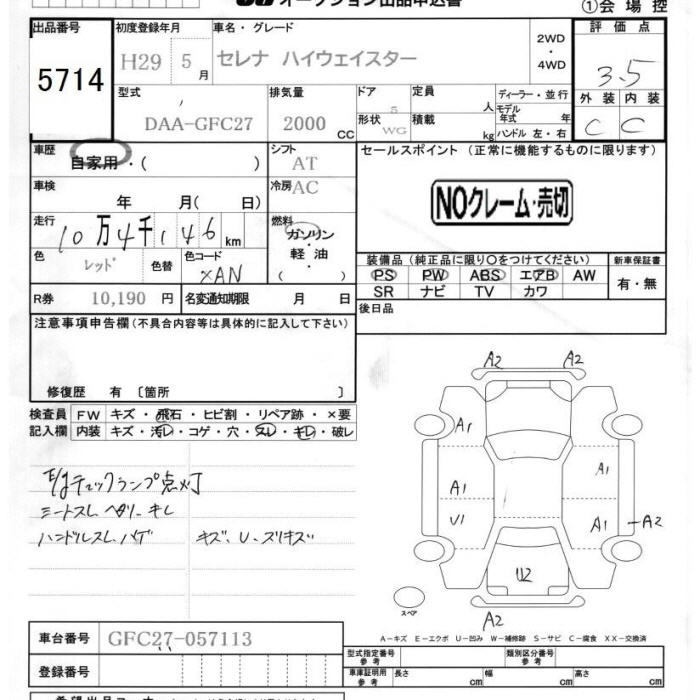 オークション出品申込書
①会場控
出品番号
5714
初度登録年月
H29 5月
車名・グレード
セレナ ハイウェイスター
2WD・4WD
評価点
3.5
外装 内装
C C
型式
DAA-GFC27
排気量
2000 CC
ドア
5
形状
WG
定員
人
積載
kg
ディーラー・並行
モデル年式 年
ハンドル 左・右
車歴
自家用・( )
シフト
AT
車検
年 月( 日)
冷房 AC
走行
10万4千146km
燃料
ガソリン・軽油・( )
色
レッド
色替
色コード
XAN
R券
10,190 円
名変通知期限 月 日
セールスポイント (正常に機能するものに限ります)
NOクレーム・売切
装備品 (純正品に限り○をつけてください)
PS PW ABS エアB AW
SR ナビ TV カワ
新車保証書
有・無
後日品
注意事項申告欄 (不具合内容等は具体的に記入して下さい)
修復歴 有 〔箇所 〕
検査員記入欄
FW キズ・飛石・ヒビ割・リペア跡・×要
内装 キズ・汚レ・コゲ・穴・スレ・キレ・破レ
E/gチェックランプ点灯
シートスレ ヘタリ キレ
ハンドルスレ ハゲ
キズ、U、スリキズ
A2 A2
A1
A1
A1
U1
A1
A2
U2
A2
スペア
A-キズ E-エクボ U-凹み W-補修跡 S-サビ C-腐食 XX-交換済
車台番号
GFC27-057113
登録番号
型式指定番号 参考
類別区分番号 参考
車庫証明用 参考
長さ cm
幅 cm
高さ cm
希望出品コーナー